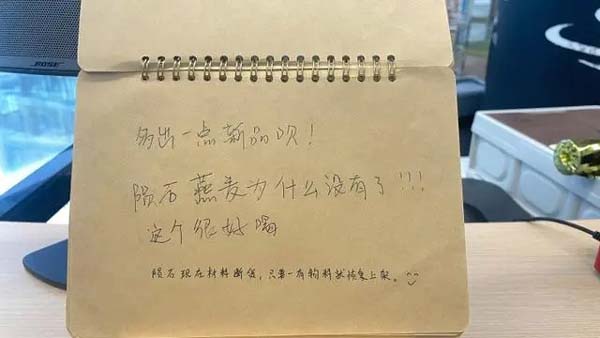 BOSE
多出一点新品呗！
陨石燕麦为什么没有了！！！
这个很好喝
陨石现在材料断货，只要一有物料就恢复上架。